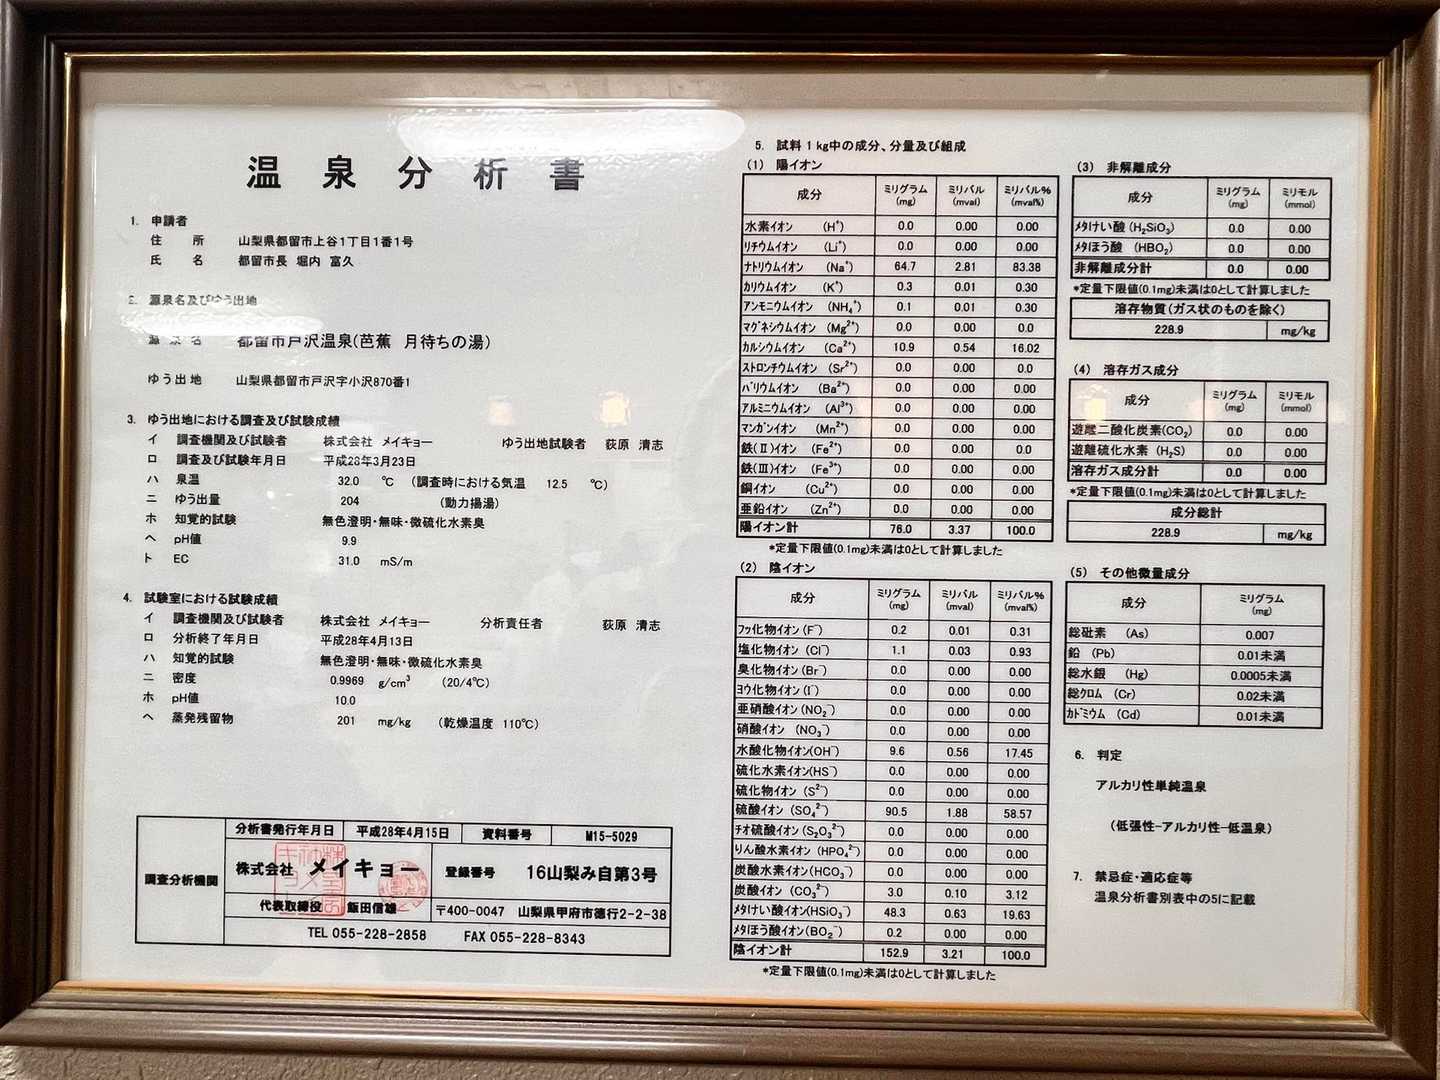 温泉分析書
1. 申請者
住所 山梨県都留市上谷1丁目1番1号
氏名 都留市長 堀内 富久
2. 源泉名及びゆう出地
源泉名 都留市戸沢温泉(芭蕉 月待ちの湯)
ゆう出地 山梨県都留市戸沢字小沢870番1
3. ゆう出地における調査及び試験成績
イ 調査機関及び試験者 株式会社 メイキョー ゆう出地試験者 荻原 清志
ロ 調査及び試験年月日 平成28年3月23日
ハ 泉温 32.0 ℃ (調査時における気温 12.5 ℃)
ニ ゆう出量 204 (動力揚湯)
ホ 知覚的試験 無色澄明・無味・微硫化水素臭
ヘ pH値 9.9
ト EC 31.0 mS/m
4. 試験室における試験成績
イ 調査機関及び試験者 株式会社 メイキョー 分析責任者 荻原 清志
ロ 分析終了年月日 平成28年4月13日
ハ 知覚的試験 無色澄明・無味・微硫化水素臭
ニ 密度 0.9969 g/cm³ (20/4℃)
ホ pH値 10.0
ヘ 蒸発残留物 201 mg/kg (乾燥温度 110℃)
調査分析機関
分析書発行年月日 平成28年4月15日 資料番号 M15-5029
株式会社 メイキョー 登録番号 16山梨み自第3号
代表取締役 飯田信雄 〒400-0047 山梨県甲府市徳行2-2-38
TEL 055-228-2858 FAX 055-228-8343
5. 試料1kg中の成分、分量及び組成
(1) 陽イオン
成分 ミリグラム(mg) ミリバル(mval) ミリバル%(mval%)
水素イオン (H⁺) 0.0 0.00 0.00
リチウムイオン (Li⁺) 0.0 0.00 0.00
ナトリウムイオン (Na⁺) 64.7 2.81 83.38
カリウムイオン (K⁺) 0.3 0.01 0.30
アンモニウムイオン (NH₄⁺) 0.1 0.01 0.30
マグネシウムイオン (Mg²⁺) 0.0 0.00 0.0
カルシウムイオン (Ca²⁺) 10.9 0.54 16.02
ストロンチウムイオン (Sr²⁺) 0.0 0.00 0.0
バリウムイオン (Ba²⁺) 0.0 0.00 0.00
アルミニウムイオン (Al³⁺) 0.0 0.00 0.00
マンガンイオン (Mn²⁺) 0.0 0.00 0.00
鉄(Ⅱ)イオン (Fe²⁺) 0.0 0.00 0.00
鉄(Ⅲ)イオン (Fe³⁺) 0.0 0.00 0.00
銅イオン (Cu²⁺) 0.0 0.00 0.00
亜鉛イオン (Zn²⁺) 0.0 0.00 0.00
陽イオン計 76.0 3.37 100.0
*定量下限値(0.1mg)未満は0として計算しました
(2) 陰イオン
成分 ミリグラム(mg) ミリバル(mval) ミリバル%(mval%)
フッ化物イオン(F⁻) 0.2 0.01 0.31
塩化物イオン (Cl⁻) 1.1 0.03 0.93
臭化物イオン(Br⁻) 0.0 0.00 0.00
ヨウ化物イオン(I⁻) 0.0 0.00 0.00
亜硝酸イオン(NO₂⁻) 0.0 0.00 0.00
硝酸イオン (NO₃⁻) 0.0 0.00 0.00
水酸化物イオン(OH⁻) 9.6 0.56 17.45
硫化水素イオン(HS⁻) 0.0 0.00 0.00
硫化物イオン (S²⁻) 0.0 0.00 0.00
硫酸イオン (SO₄²⁻) 90.5 1.88 58.57
チオ硫酸イオン(S₂O₃²⁻) 0.0 0.00 0.00
りん酸水素イオン (HPO₄²⁻) 0.0 0.00 0.00
炭酸水素イオン(HCO₃⁻) 0.0 0.00 0.00
炭酸イオン (CO₃²⁻) 3.0 0.10 3.12
メタけい酸イオン(HSiO₃⁻) 48.3 0.63 19.63
メタほう酸イオン(BO₂⁻) 0.2 0.00 0.00
陰イオン計 152.9 3.21 100.0
*定量下限値(0.1mg)未満は0として計算しました
(3) 非解離成分
成分 ミリグラム(mg) ミリモル(mmol)
メタけい酸 (H₂SiO₃) 0.0 0.00
メタほう酸 (HBO₂) 0.0 0.00
非解離成分計 0.0 0.00
*定量下限値(0.1mg)未満は0として計算しました
溶存物質(ガス状のものを除く)
228.9 mg/kg
(4) 溶存ガス成分
成分 ミリグラム(mg) ミリモル(mmol)
遊離二酸化炭素(CO₂) 0.0 0.00
遊離硫化水素 (H₂S) 0.0 0.00
溶存ガス成分計 0.0 0.00
*定量下限値(0.1mg)未満は0として計算しました
成分総計
228.9 mg/kg
(5) その他微量成分
成分 ミリグラム(mg)
総砒素 (As) 0.007
鉛 (Pb) 0.01未満
総水銀 (Hg) 0.0005未満
総クロム (Cr) 0.02未満
カドミウム (Cd) 0.01未満
6. 判定
アルカリ性単純温泉
(低張性-アルカリ性-低温泉)
7. 禁忌症・適応症等
温泉分析書別表中の5に記載